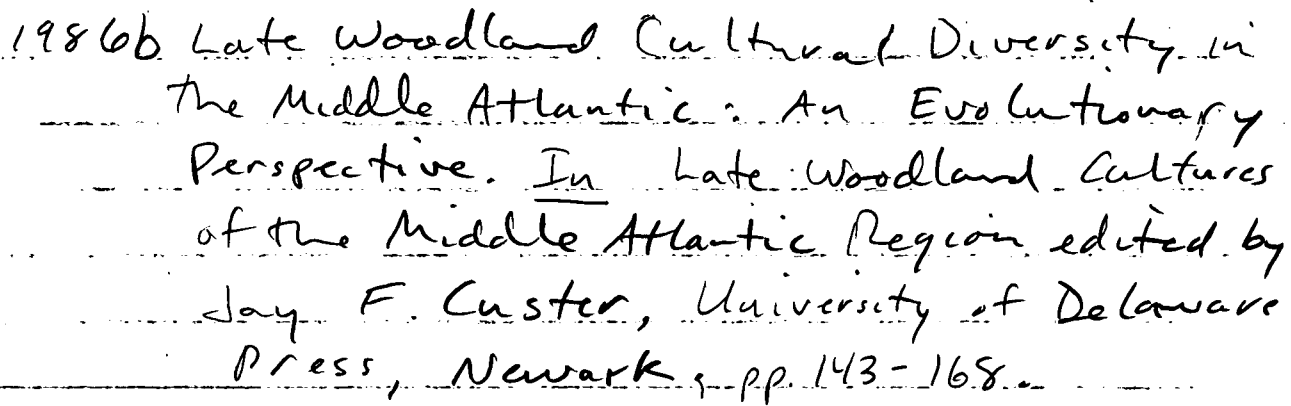 1986b Late Woodland Cultural Diversity in
the Middle Atlantic: An Evolutionary
Perspective. In Late Woodland Cultures
of the Middle Atlantic Region edited by
Jay F. Custer, University of Delaware
Press, Newark, pp. 143-168.